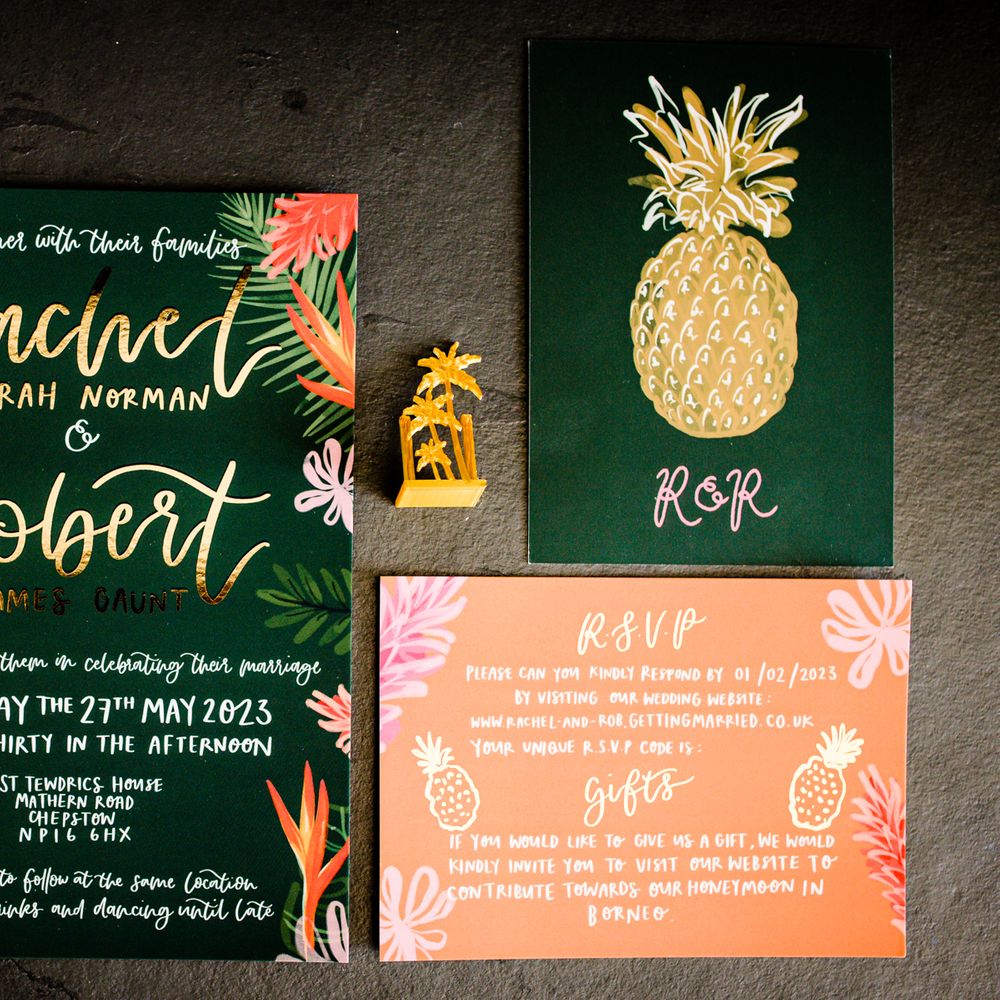 with their families
RAH NORMAN
&
GAUNT
them in celebrating their marriage
THE 27TH MAY 2023
THIRTY IN THE AFTERNOON
ST TEWDRICS HOUSE
MATHERN ROAD
CHEPSTOW
NP16 6HX
to follow at the same location
drinks and dancing until late
R&R
R.S.V.P
PLEASE CAN YOU KINDLY RESPOND BY 01/02/2023
BY VISITING OUR WEDDING WEBSITE:
WWW.RACHEL-AND-ROB.GETTINGMARRIED.CO.UK
YOUR UNIQUE R.S.V.P CODE IS:
Gifts
IF YOU WOULD LIKE TO GIVE US A GIFT, WE WOULD
KINDLY INVITE YOU TO VISIT OUR WEBSITE TO
CONTRIBUTE TOWARDS OUR HONEYMOON IN
BORNEO.